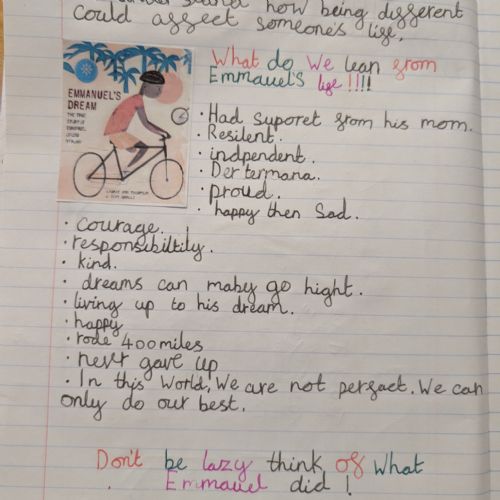 how being different
could affect someones life.
What do We lean from
Emmauel's life !!!!
EMMANUEL'S
DREAM
THE TRUE
STORY OF
EMMANUEL
OFOSU
YEBOAH
· Had suporet from his mom.
· Resilent.
· indpendent.
· Dertermana.
· proud.
· happy then Sad.
· courage.
· responsibiltily.
· kind.
· dreams can maby go hight.
· living up to his dream.
· happy
· rode 400miles
· never gave up
· In this World, We are not perfact. We can
only do our best.
Don't be lazy think of what
Emmauel did !